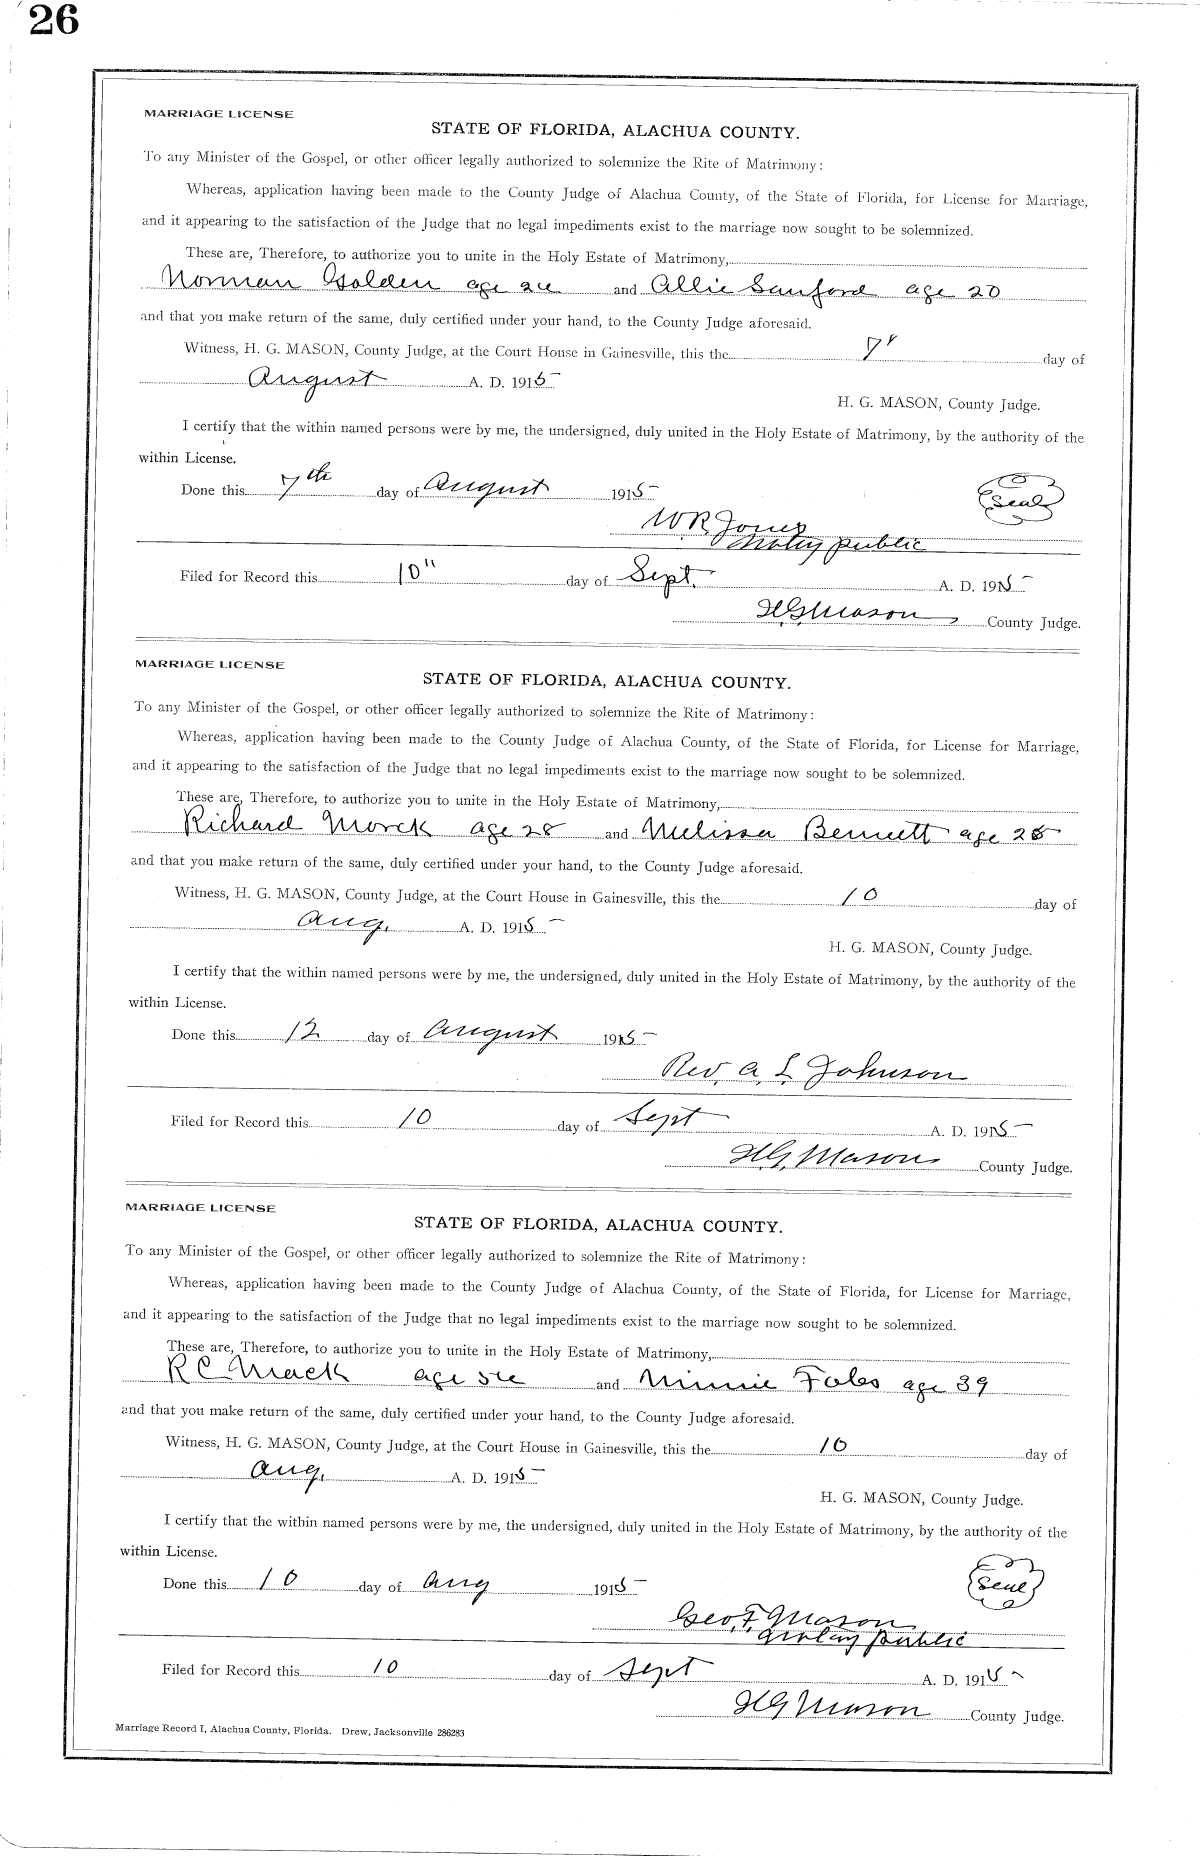 26
MARRIAGE LICENSE
STATE OF FLORIDA, ALACHUA COUNTY.
To any Minister of the Gospel, or other officer legally authorized to solemnize the Rite of Matrimony:
Whereas, application having been made to the County Judge of Alachua County, of the State of Florida, for License for Marriage,
and it appearing to the satisfaction of the Judge that no legal impediments exist to the marriage now sought to be solemnized.
These are, Therefore, to authorize you to unite in the Holy Estate of Matrimony,
Norman Golden age 24 and Allie Sanford age 20
and that you make return of the same, duly certified under your hand, to the County Judge aforesaid.
Witness, H. G. MASON, County Judge, at the Court House in Gainesville, this the 7" day of
August A. D. 1915
H. G. MASON, County Judge.
I certify that the within named persons were by me, the undersigned, duly united in the Holy Estate of Matrimony, by the authority of the
within License.
Done this 7th day of August 1915
Seal
W.R. Jones
Notary public
Filed for Record this 10" day of Sept. A. D. 1915
H.G. Mason County Judge.
MARRIAGE LICENSE
STATE OF FLORIDA, ALACHUA COUNTY.
To any Minister of the Gospel, or other officer legally authorized to solemnize the Rite of Matrimony:
Whereas, application having been made to the County Judge of Alachua County, of the State of Florida, for License for Marriage,
and it appearing to the satisfaction of the Judge that no legal impediments exist to the marriage now sought to be solemnized.
These are, Therefore, to authorize you to unite in the Holy Estate of Matrimony,
Richard Morck age 28 and Melissa Bennett age 28
and that you make return of the same, duly certified under your hand, to the County Judge aforesaid.
Witness, H. G. MASON, County Judge, at the Court House in Gainesville, this the 10 day of
Aug. A. D. 1915
H. G. MASON, County Judge.
I certify that the within named persons were by me, the undersigned, duly united in the Holy Estate of Matrimony, by the authority of the
within License.
Done this 12 day of August 1915
Rev. A. L. Johnson
Filed for Record this 10 day of Sept A. D. 1915
H.G. Mason County Judge.
MARRIAGE LICENSE
STATE OF FLORIDA, ALACHUA COUNTY.
To any Minister of the Gospel, or other officer legally authorized to solemnize the Rite of Matrimony:
Whereas, application having been made to the County Judge of Alachua County, of the State of Florida, for License for Marriage,
and it appearing to the satisfaction of the Judge that no legal impediments exist to the marriage now sought to be solemnized.
These are, Therefore, to authorize you to unite in the Holy Estate of Matrimony,
R C Mack age and Minnie Fales age 39
and that you make return of the same, duly certified under your hand, to the County Judge aforesaid.
Witness, H. G. MASON, County Judge, at the Court House in Gainesville, this the 10 day of
Aug. A. D. 1915
H. G. MASON, County Judge.
I certify that the within named persons were by me, the undersigned, duly united in the Holy Estate of Matrimony, by the authority of the
within License.
Done this 10 day of Aug 1915
Seal
Geo. F. Mason
Notary public
Filed for Record this 10 day of Sept A. D. 1915
H G Mason County Judge.
Marriage Record I, Alachua County, Florida. Drew, Jacksonville 286283